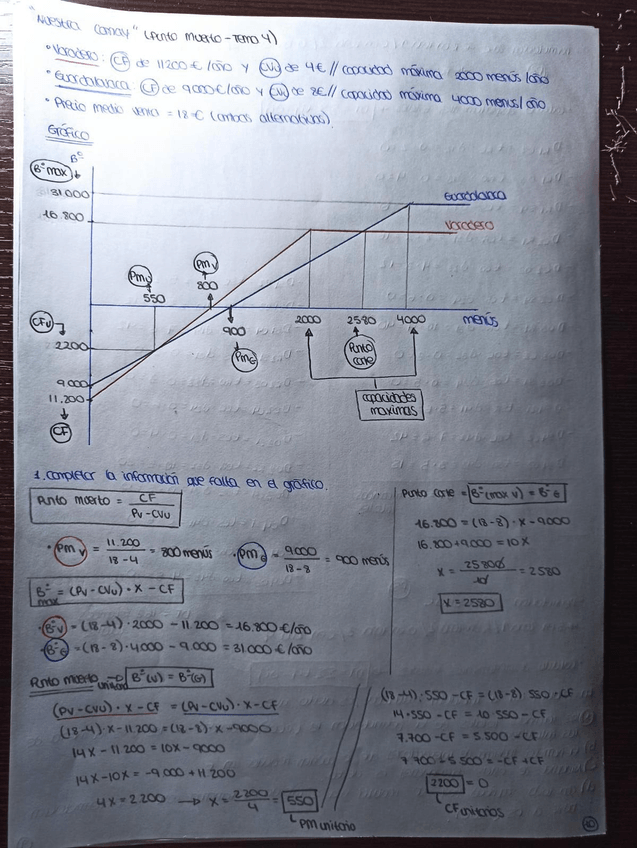 "Nuestra Camay" (Punto Muerto - Tema 4)
• Varadero: CF de 11200 €/año y CVu de 4€ // capacidad máxima 2000 menús/año
• Guardalavaca: CF de 9000€/año y CVu de 8€ // capacidad máxima 4000 menus/año
• Precio medio venta = 18€ (ambas alternativas).
Gráfico
Bº
Bº max
31 000
16.800
Guardalavaca
Varadero
PmU
PmV
550
800
CFU
900
PmG
2000
2580
4000
menús
Punto corte
capacidades maximas
2200
9 000
11.200
CF
1. completar la información que falta en el gráfico.
Punto muerto = CF / Pv - CVu
• PmV = 11.200 / 18-4 = 800 menús
• PmG = 9.000 / 18-8 = 900 menús
Bº max = (Pv - CVu) · x - CF
• BºV = (18-4) · 2000 - 11.200 = 16.800 €/año
• BºG = (18-8) · 4.000 - 9.000 = 31 000 €/año
Punto corte = Bº(max V) = BºG
16.800 = (18-8) · x - 9000
16.800 + 9000 = 10x
x = 25800 / 10 = 2580
x = 2580
Punto muerto unitario → Bº(V) = Bº(G)
(Pv - CVu) · x - CF = (Pv - CVu) · x - CF
(18-4) · x - 11.200 = (18-8) · x - 9000
14x - 11 200 = 10x - 9000
14x - 10x = -9 000 + 11 200
4x = 2 200 → x = 2200 / 4 = 550
PM unitario
(18-4) · 550 - CF = (18-8) · 550 - CF
14·550 - CF = 10·550 - CF
7.700 - CF = 5.500 - CF
7 700 + 5 500 = -CF + CF
2200 = 0
CF unitarios